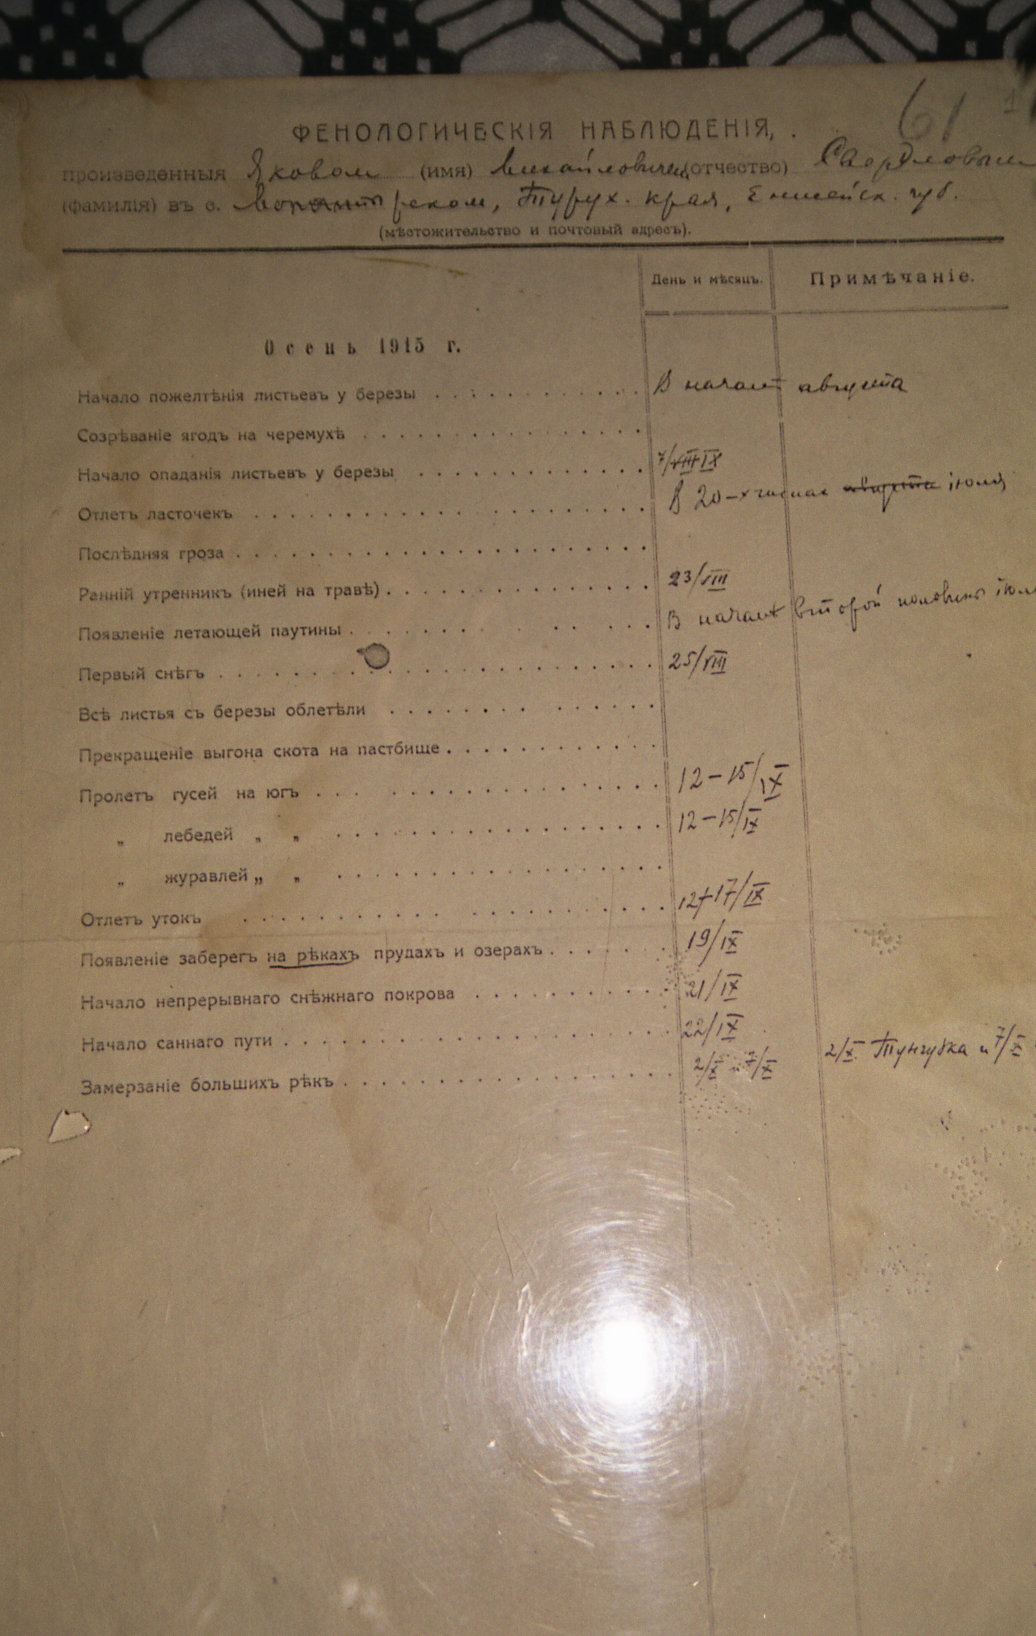 61
ФЕНОЛОГИЧЕСКІЯ НАБЛЮДЕНІЯ,
произведенныя Яковом (имя) Михайловичем (отчество) Свердловым
(фамилія) въ с. Монастырском, Турух. края, Енисейск. губ.
(мѣстожительство и почтовый адресъ).
День и мѣсяцъ. Примѣчаніе.
Осень 1915 г.
Начало пожелтѣнія листьевъ у березы В начале августа
Созрѣваніе ягодъ на черемухѣ
Начало опаданія листьевъ у березы 7/VIII IX
Отлетъ ласточекъ В 20-х числах августа іюля
Послѣдняя гроза
Ранній утренникъ (иней на травѣ) 23/VIII
Появленіе летающей паутины В начале второй половины
Первый снѣгъ 25/VIII
Всѣ листья съ березы облетѣли
Прекращеніе выгона скота на пастбище
Пролетъ гусей на югъ 12-15/IX
„ лебедей „ „ 12-15/IX
„ журавлей „ „
Отлетъ утокъ 12-17/IX
Появленіе заберегъ на рѣкахъ прудахъ и озерахъ 19/IX
Начало непрерывнаго снѣжнаго покрова 21/IX
Начало саннаго пути 22/IX
Замерзаніе большихъ рѣкъ 2/X и 7/X 2/X Тунгузка и 7/X